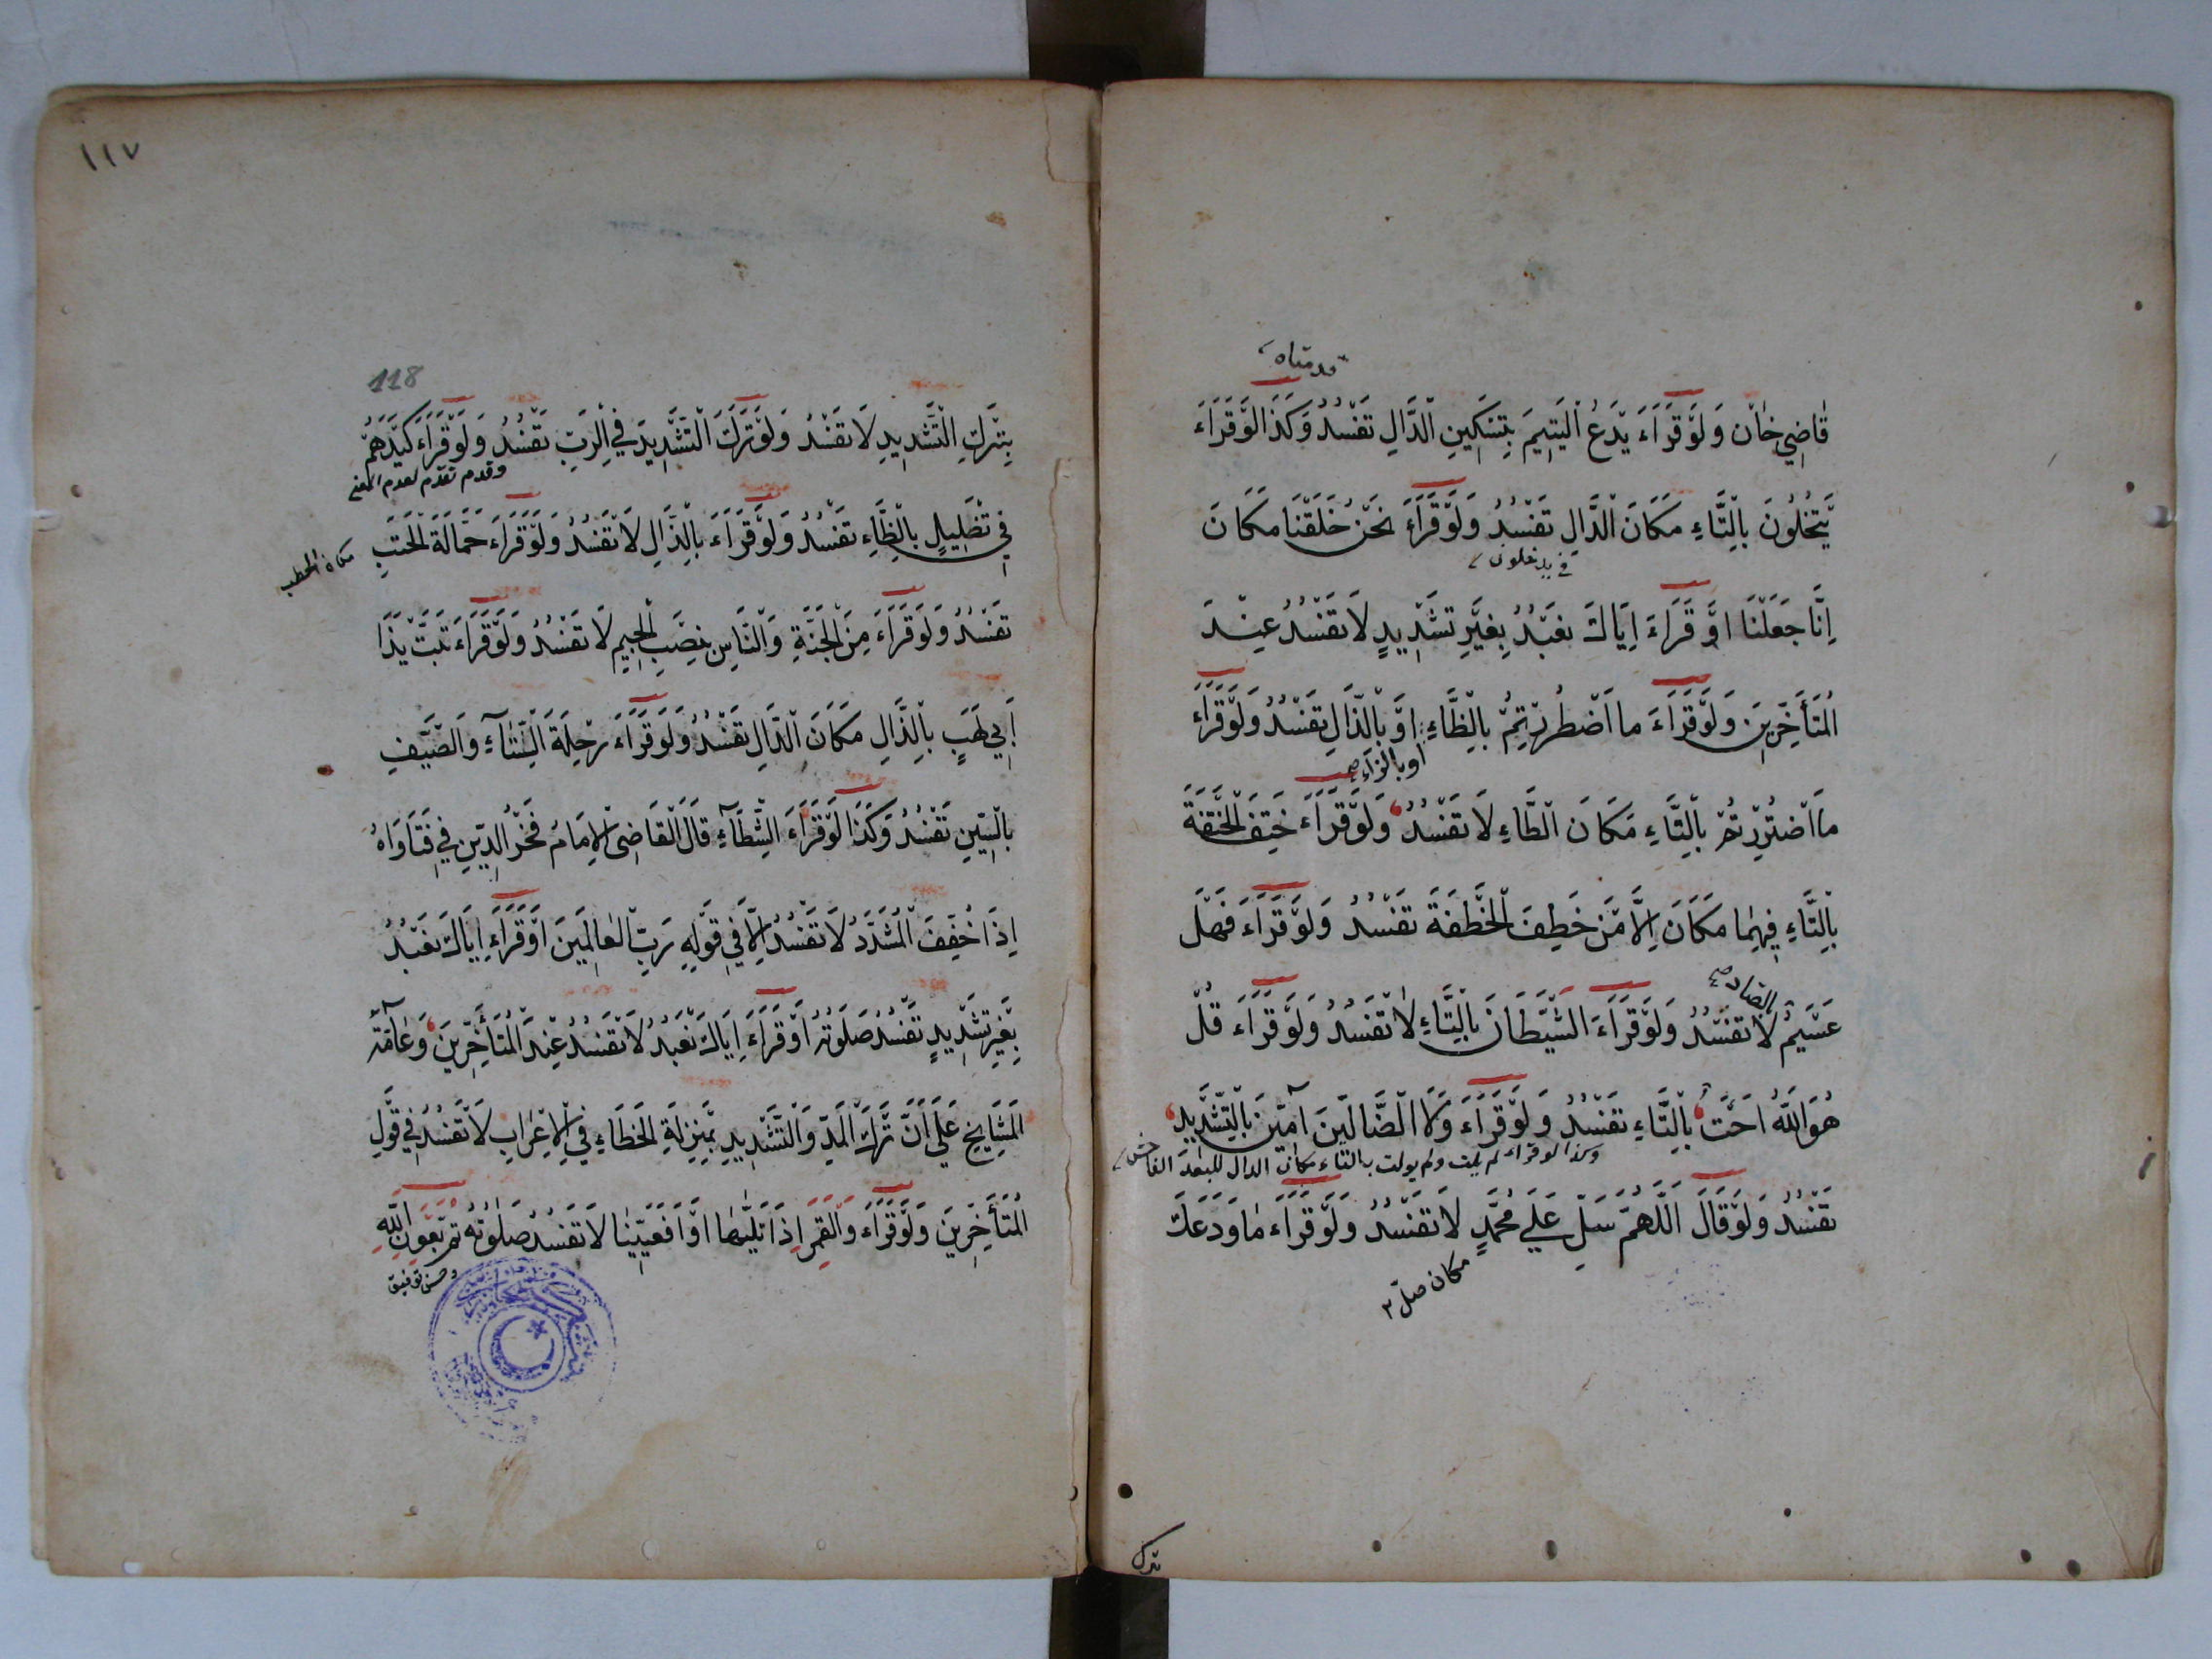 قدمناه
قَاضِي خَانْ وَلَوْ قَرَاءَ يَدْعُ الْيَتِيمَ بِتَسْكِينِ الدَّالِ تَفْسُدُ وَكَذَا لَوْ قَرَاءَ
يَتْخُلُونَ بِالتَّاءِ مَكَانَ الدَّالِ تَفْسُدُ وَلَوْ قَرَاءَ نَحْنُ خَلَقْنَا مَكَانَ
في يدخلون
اِنَّا جَعَلْنَا اَوْ قَرَاءَ اِيَاكَ نَعْبُدُ بِغَيْرِ تَشْدِيدٍ لَا تَفْسُدُ عِنْدَ
الْمُتَأَخِّرِينَ وَلَوْ قَرَاءَ مَا اضْطُرِرْتُمْ بِالظَّاءِ اَوْ بِالذَّالِ تَفْسُدُ وَلَوْ قَرَاءَ
او بالزاء صح
مَا اضْتُرِرْتُمْ بِالتَّاءِ مَكَانَ الطَّاءِ لَا تَفْسُدُ وَلَوْ قَرَاءَ خَتِفَ الْخَتْفَةَ
بِالتَّاءِ فِيهِمَا مَكَانَ اِلَّا مَنْ خَطِفَ الْخَطْفَةَ تَفْسُدُ وَلَوْ قَرَاءَ فَهَلْ
بالصاد صح
عَسَيْتُمْ لَا تَفْسُدُ وَلَوْ قَرَاءَ الشَّيْطَانَ بِالتَّاءِ لَا تَفْسُدُ وَلَوْ قَرَاءَ قُلْ
هُوَ اللّٰهُ اَحَتٌ بِالتَّاءِ تَفْسُدُ وَلَوْ قَرَاءَ وَلَا الضَّالِّينَ آمِّينَ بِالتَّشْدِيدِ
وكذا لو قراء لم يلت ولم يولت بالتاء مكان الدال للبعد الفاحش
تَفْسُدُ وَلَوْ قَالَ اَللّٰهُمَّ سَلِّ عَلٰى مُحَمَّدٍ لَا تَفْسُدُ وَلَوْ قَرَاءَ مَا وَدَعَكَ
مكان صلّ
بترك
١١٧
118
بِتَرْكِ التَّشْدِيدِ لَا تَفْسُدُ وَلَوْ تَرَكَ التَّشْدِيدَ فِي الرَّبِّ تَفْسُدُ وَلَوْ قَرَاءَ كَيْدَهُمْ
وقدم تقدم لعدم المعنى
فِي تَظْلِيلٍ بِالظَّاءِ تَفْسُدُ وَلَوْ قَرَاءَ بِالذَّالِ لَا تَفْسُدُ وَلَوْ قَرَاءَ حَمَّالَةَ الْحَتَبِ
مكان الحطب
تَفْسُدُ وَلَوْ قَرَاءَ مِنَ الْجَنَّةِ وَالنَّاسِ بِنَصْبِ الْجِيمِ لَا تَفْسُدُ وَلَوْ قَرَاءَ تَبَّتْ يَذَا
اَبِي لَهَبٍ بِالذَّالِ مَكَانَ الدَّالِ تَفْسُدُ وَلَوْ قَرَاءَ رِحْلَةَ السِّتَآءِ وَالصَّيْفِ
بِالسِّينِ تَفْسُدُ وَكَذَا لَوْ قَرَاءَ الشِّطَآءِ قَالَ الْقَاضِي الْاِمَامُ فَخْرُ الدِّينِ فِي فَتَاوَاهُ
اِذَا خُفِّفَ الْمُشَدَّدُ لَا تَفْسُدُ اِلَّا فِي قَوْلِهِ رَبِّ الْعَالَمِينَ اَوْ قَرَاءَ اِيَاكَ نَعْبُدُ
بِغَيْرِ تَشْدِيدٍ تَفْسُدُ صَلَوتُهُ اَوْ قَرَاءَ اِيَاكَ نَعْبُدُ لَا تَفْسُدُ عِنْدَ الْمُتَأَخِّرِينَ وَعَآمَّةُ
الْمَشَايِخِ عَلٰى اَنَّ تَرْكَ الْمَدِّ وَالتَّشْدِيدِ بِمَنْزِلَةِ الْخَطَاءِ فِي الْاِعْرَابِ لَا تَفْسُدُ فِي قَوْلِ
الْمُتَأَخِّرِينَ وَلَوْ قَرَاءَ وَالْقَمَرِ اِذَا تَلٰيهَا اَوْ اَفَعَيِّينَا لَا تَفْسُدُ صَلٰوتُهُ تَمَّ بِعَوْنِ اللّٰهِ
وحسن توفيق